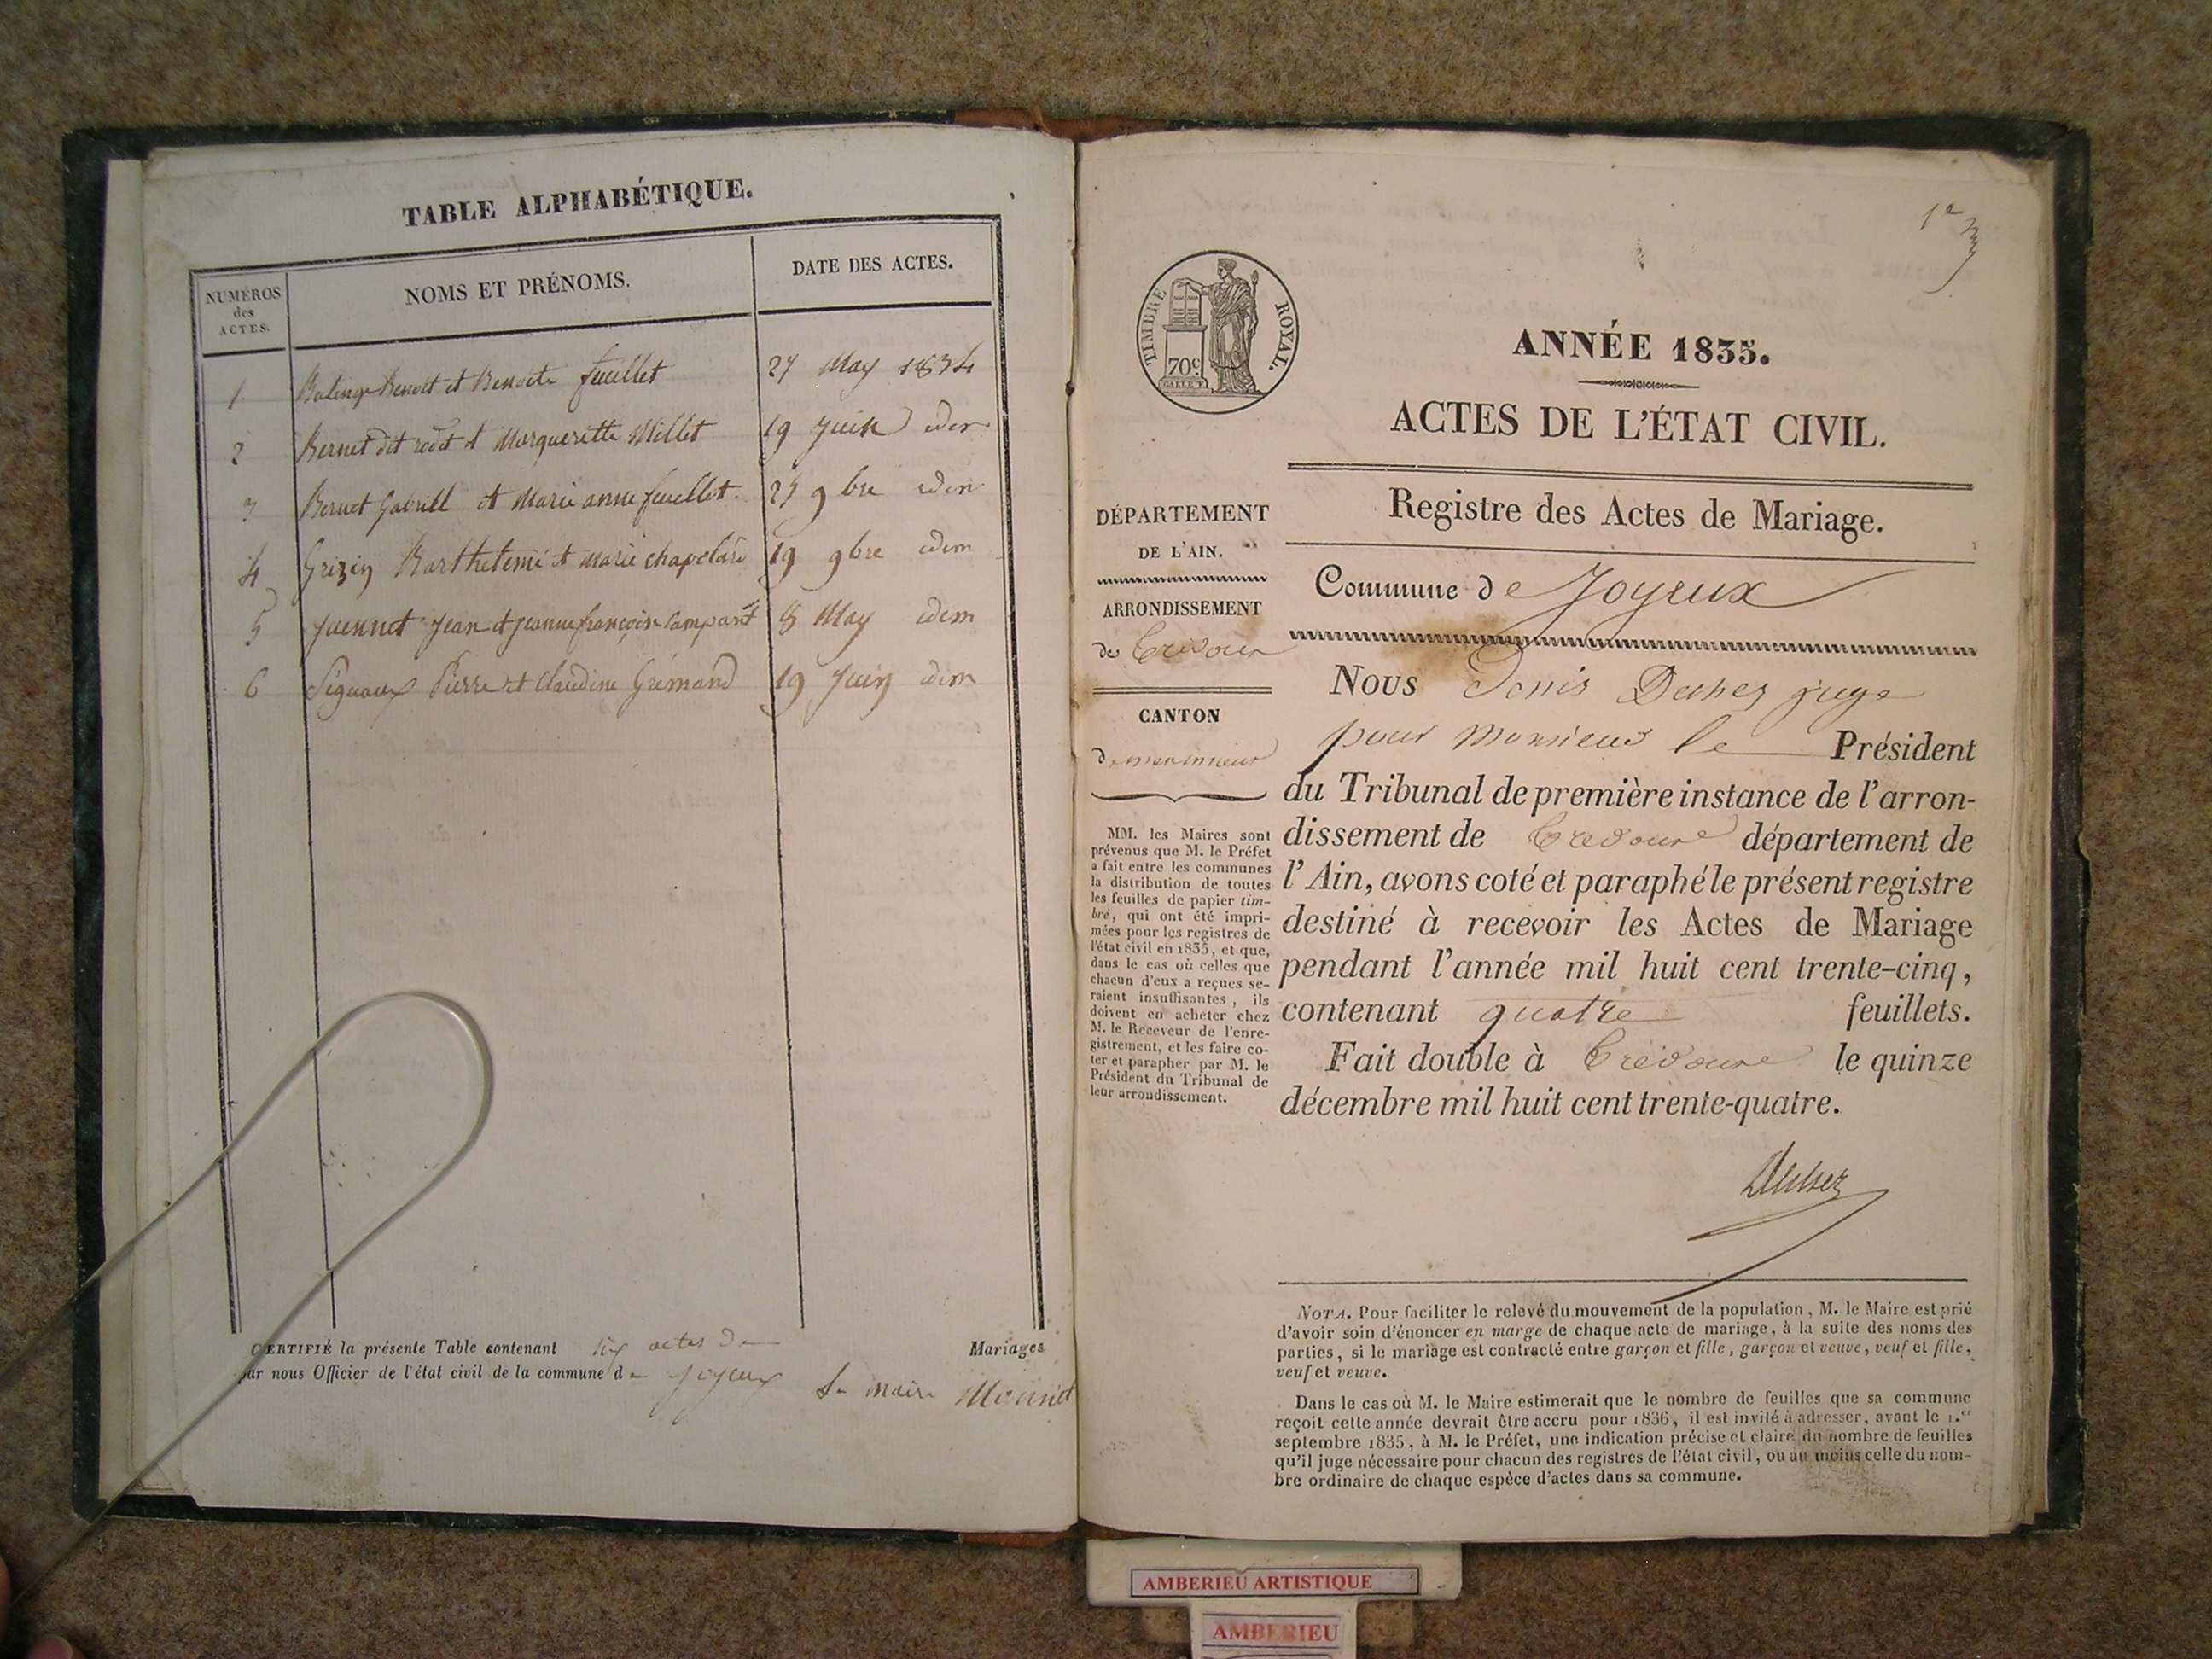 TABLE ALPHABÉTIQUE.
NUMÉROS
des
ACTES.
NOMS ET PRÉNOMS.
DATE DES ACTES.
1 Benoit et Benoite feuillet 27 May 1834
2 Bernet dit et Margueritte Millet 19 Juin idem
3 Bernet Gabrill et Marie anne feuillet 9bre idem
4 Grizin Barthelemi et Marie chapeland 19 9bre idem
5 Juennet Jean et Jeanne françoise 8 May idem
6 Pierre et Claudine Grimand 19 Juin idem
CERTIFIÉ la présente Table contenant six actes de Mariages
par nous Officier de l'état civil de la commune de Joyeux le maire
1e
TIMBRE ROYAL.
70c
ANNÉE 1835.
ACTES DE L'ÉTAT CIVIL.
Registre des Actes de Mariage.
Commune de Joyeux
DÉPARTEMENT
DE L'AIN.
ARRONDISSEMENT
de Trevoux
CANTON
de
MM. les Maires sont
prévenus que M. le Préfet
a fait entre les communes
la distribution de toutes
les feuilles de papier tim-
bré, qui ont été impri-
mées pour les registres de
l'état civil en 1835, et que,
dans le cas où celles que
chacun d'eux a reçues se-
raient insuffisantes, ils
doivent en acheter chez
M. le Receveur de l'enre-
gistrement, et les faire co-
ter et parapher par M. le
Président du Tribunal de
leur arrondissement.
Nous Denis juge
pour Monsieur le Président
du Tribunal de première instance de l'arron-
dissement de Trevoux département de
l'Ain, avons coté et paraphé le présent registre
destiné à recevoir les Actes de Mariage
pendant l'année mil huit cent trente-cinq,
contenant quatre feuillets.
Fait double à Trevoux le quinze
décembre mil huit cent trente-quatre.
NOTA. Pour faciliter le relevé du mouvement de la population, M. le Maire est prié
d'avoir soin d'énoncer en marge de chaque acte de mariage, à la suite des noms des
parties, si le mariage est contracté entre garçon et fille, garçon et veuve, veuf et fille,
veuf et veuve.
Dans le cas où M. le Maire estimerait que le nombre de feuilles que sa commune
reçoit cette année devrait être accru pour 1836, il est invité à adresser, avant le 1.er
septembre 1835, à M. le Préfet, une indication précise et claire du nombre de feuilles
qu'il juge nécessaire pour chacun des registres de l'état civil, ou au moins celle du nom-
bre ordinaire de chaque espèce d'actes dans sa commune.
AMBERIEU ARTISTIQUE
AMBERIEU